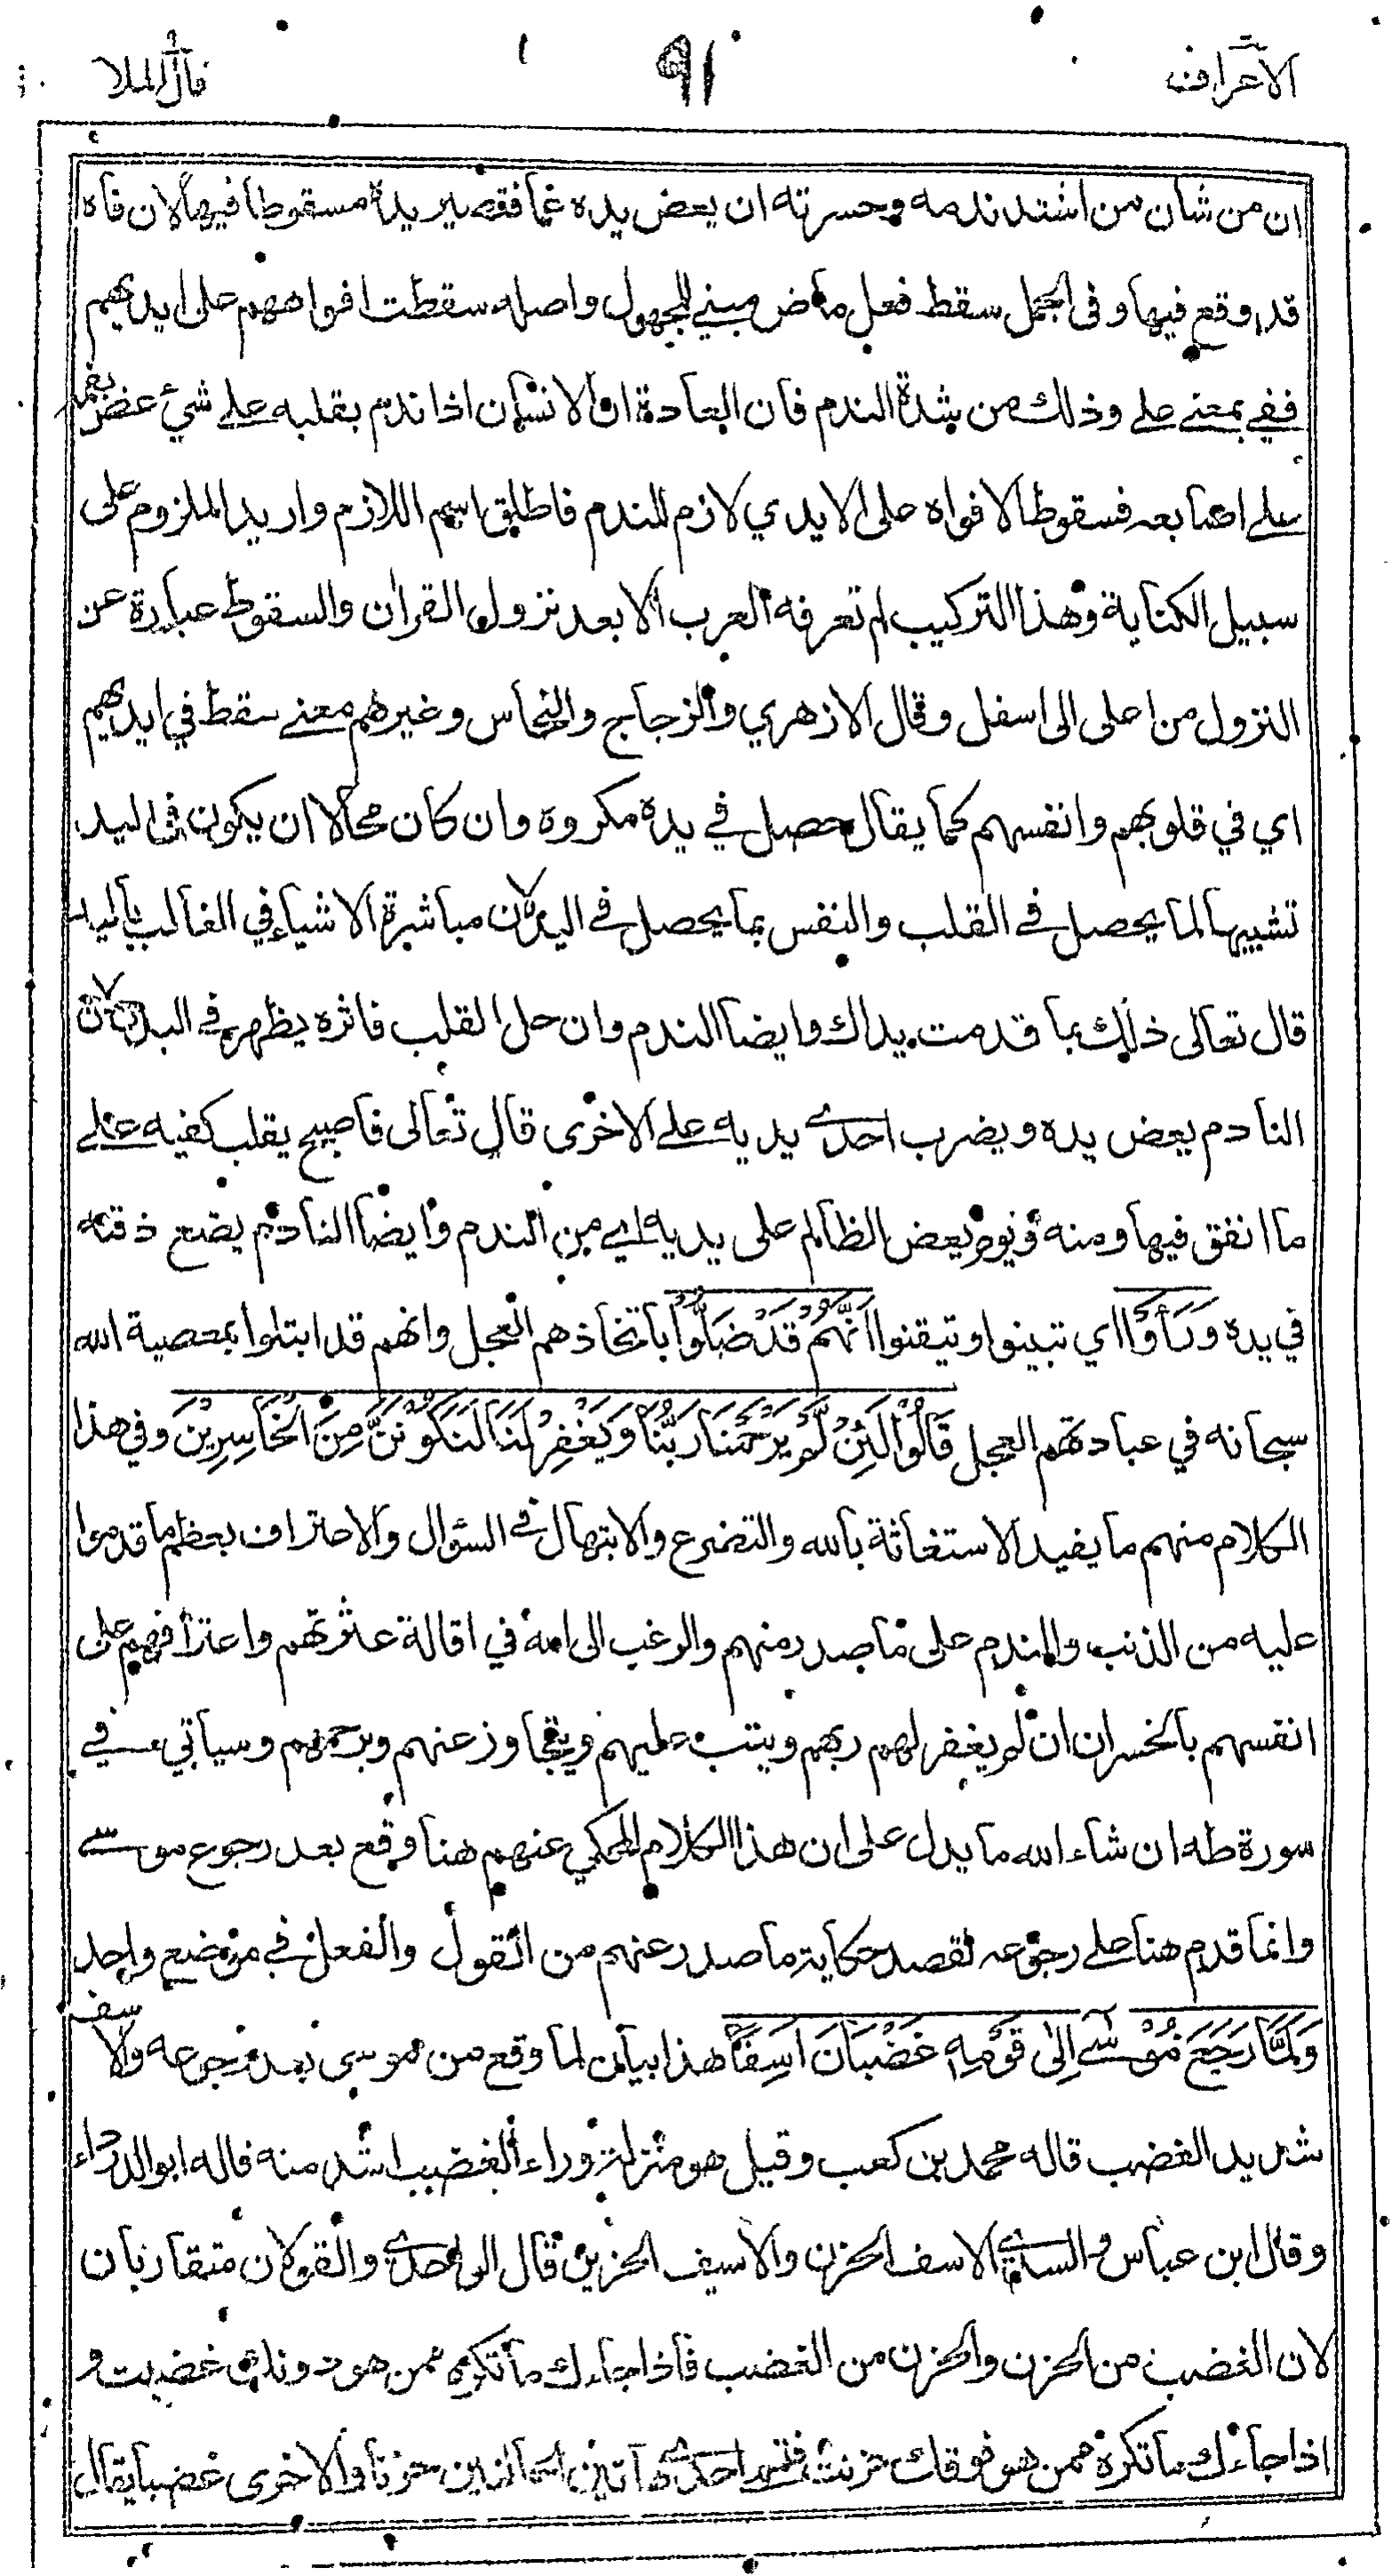 الاعراف
٩١
قال الملا
ان من شان من اشتد ندمه وحسرته ان يعض يده غما فتصير يده مسقوطا فيها لان فاه
قد وقع فيها وفى الجمل سقط فعل ماض مبني للمجهول واصله سقطت افواههم على ايديهم
ففي بمعنے علے وذلك من شدة الندم فان العادة ان الانسان اذا ندم بقلبه علے شيء عض بفمه
علے اصابعه فسقوط الافواه على الايدي لازم للندم فاطلق اسم اللازم واريد الملزوم على
سبيل الكناية وهذا التركيب لم تعرفه العرب الا بعد نزول القران والسقوط عبارة عن
النزول من اعلى الى اسفل وقال الازهري والزجاج والنحاس وغيرهم معنے سقط في ايديهم
اي في قلوبهم وانفسهم كما يقال حصل في يده مكروه وان كان محالا ان يكون فى اليد
تشبيها لما يحصل في القلب والنفس بما يحصل في اليد لان مباشرة الاشياء في الغالب باليد
قال تعالى ذلك بما قدمت يداك وايضا الندم وان حل القلب فاثره يظهر في البدن لان
النادم يعض يده ويضرب احدے يديه علے الاخرى قال تعالى فاصبح يقلب كفيه علے
ما انفق فيها ومنه ويوم يعض الظالم على يديه اي من الندم وايضا النادم يضع ذقنه
في يده وَرَأَوْا اي تبينوا وتيقنوا اَنَّهُمْ قَدْ ضَلُّوْا باتخاذهم العجل وانهم قد ابتلوا بمعصية الله
سبحانه في عبادتهم العجل قَالُوْا لَئِنْ لَّمْ يَرْحَمْنَا رَبُّنَا وَيَغْفِرْ لَنَا لَنَكُوْنَنَّ مِنَ الْخَاسِرِيْنَ وفي هذا
الكلام منهم ما يفيد الاستغاثة بالله والتضرع والابتهال في السؤال والاعتراف بعظم ما قدموا
عليه من الذنب والندم على ما صدر منهم والرغب الى الله في اقالة عثرتهم واعترافهم على
انفسهم بالخسران ان لم يغفر لهم ربهم ويتب عليهم ويتجاوز عنهم ويرحمهم وسياتي في
سورة طه ان شاء الله ما يدل على ان هذا الكلام المحكي عنهم هنا وقع بعد رجوع موسے
وانما قدم هنا علے رجوعه لقصد حكاية ما صدر عنهم من القول والفعل في موضع واحد
وَلَمَّا رَجَعَ مُوْسٰے اِلٰى قَوْمِهٖ غَضْبَانَ اَسِفًا هذا بيان لما وقع من موسى بعد رجوعه والاسف
شديد الغضب قاله محمد بن كعب وقيل هو منزلة وراء الغضب اشد منه قاله ابو الدرداء
وقال ابن عباس والسدي الاسف الحزن والاسيف الحزين قال الواحدے والقولان متقاربان
لان الغضب من الحزن والحزن من الغضب فاذا جاءك ما تكره ممن هو دونك غضبت و
اذا جاءك ما تكره ممن هو فوقك حزنت فتسمى احدے هاتين الحالتين حزنا والاخرى غضبا يقال